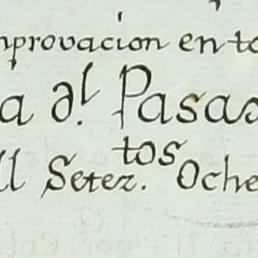 nprovacion en to
a d.l Pasas
ll Setez.tos Oche